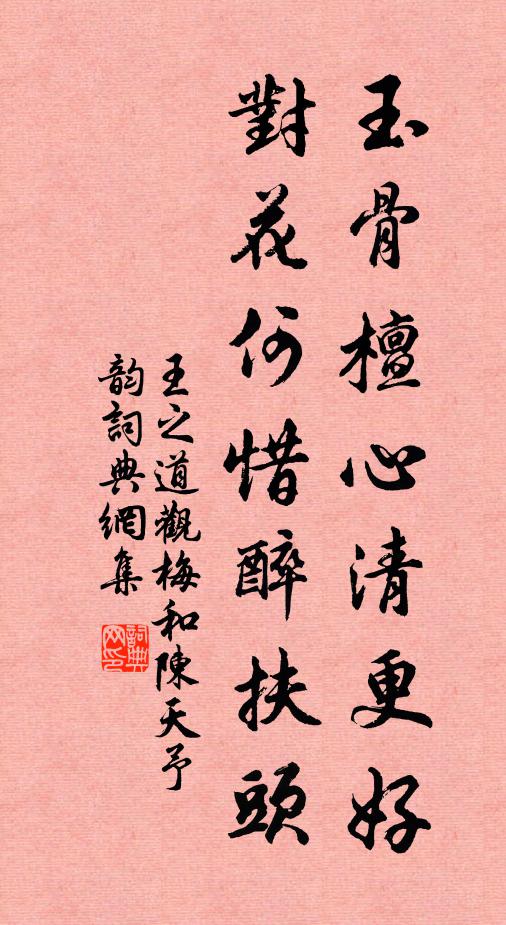 玉骨檀心清更好
對花何惜醉扶頭
王之道觀梅和陳天予
韵詞典網集
詞典網印